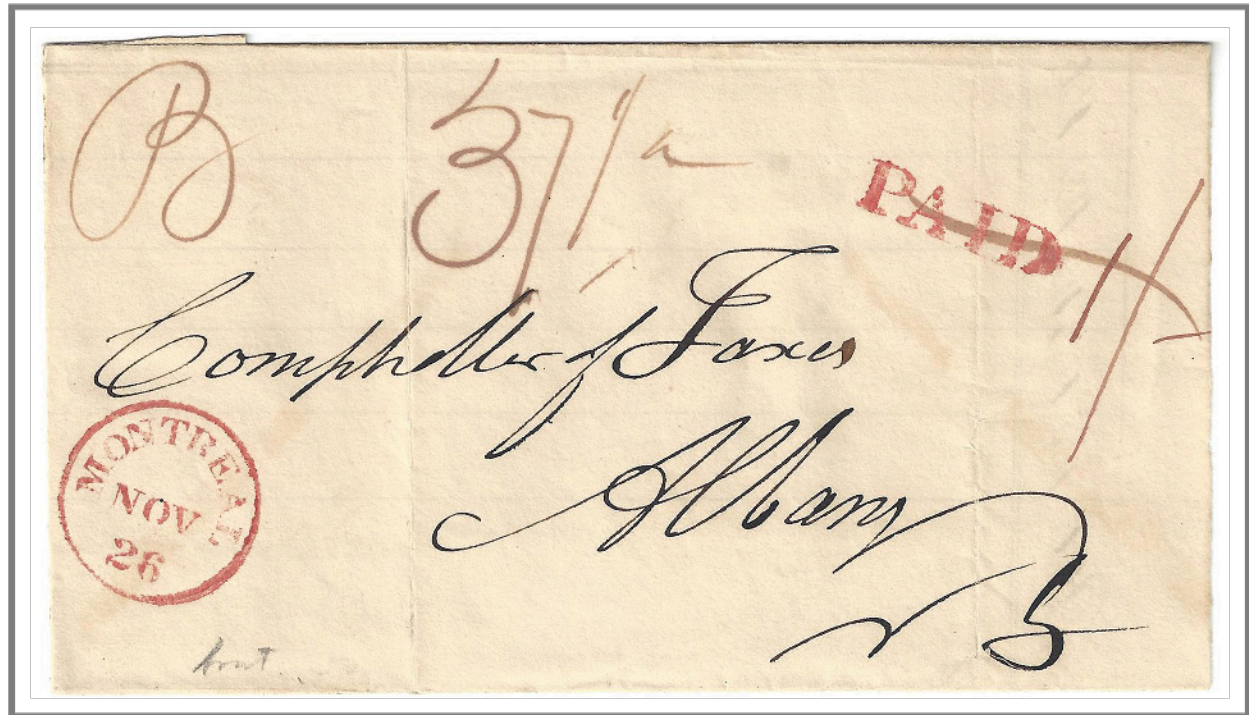 B 37 1/2
PAID 1/-
Comptroller of Taxes
Albany
MONTREAL
NOV
26